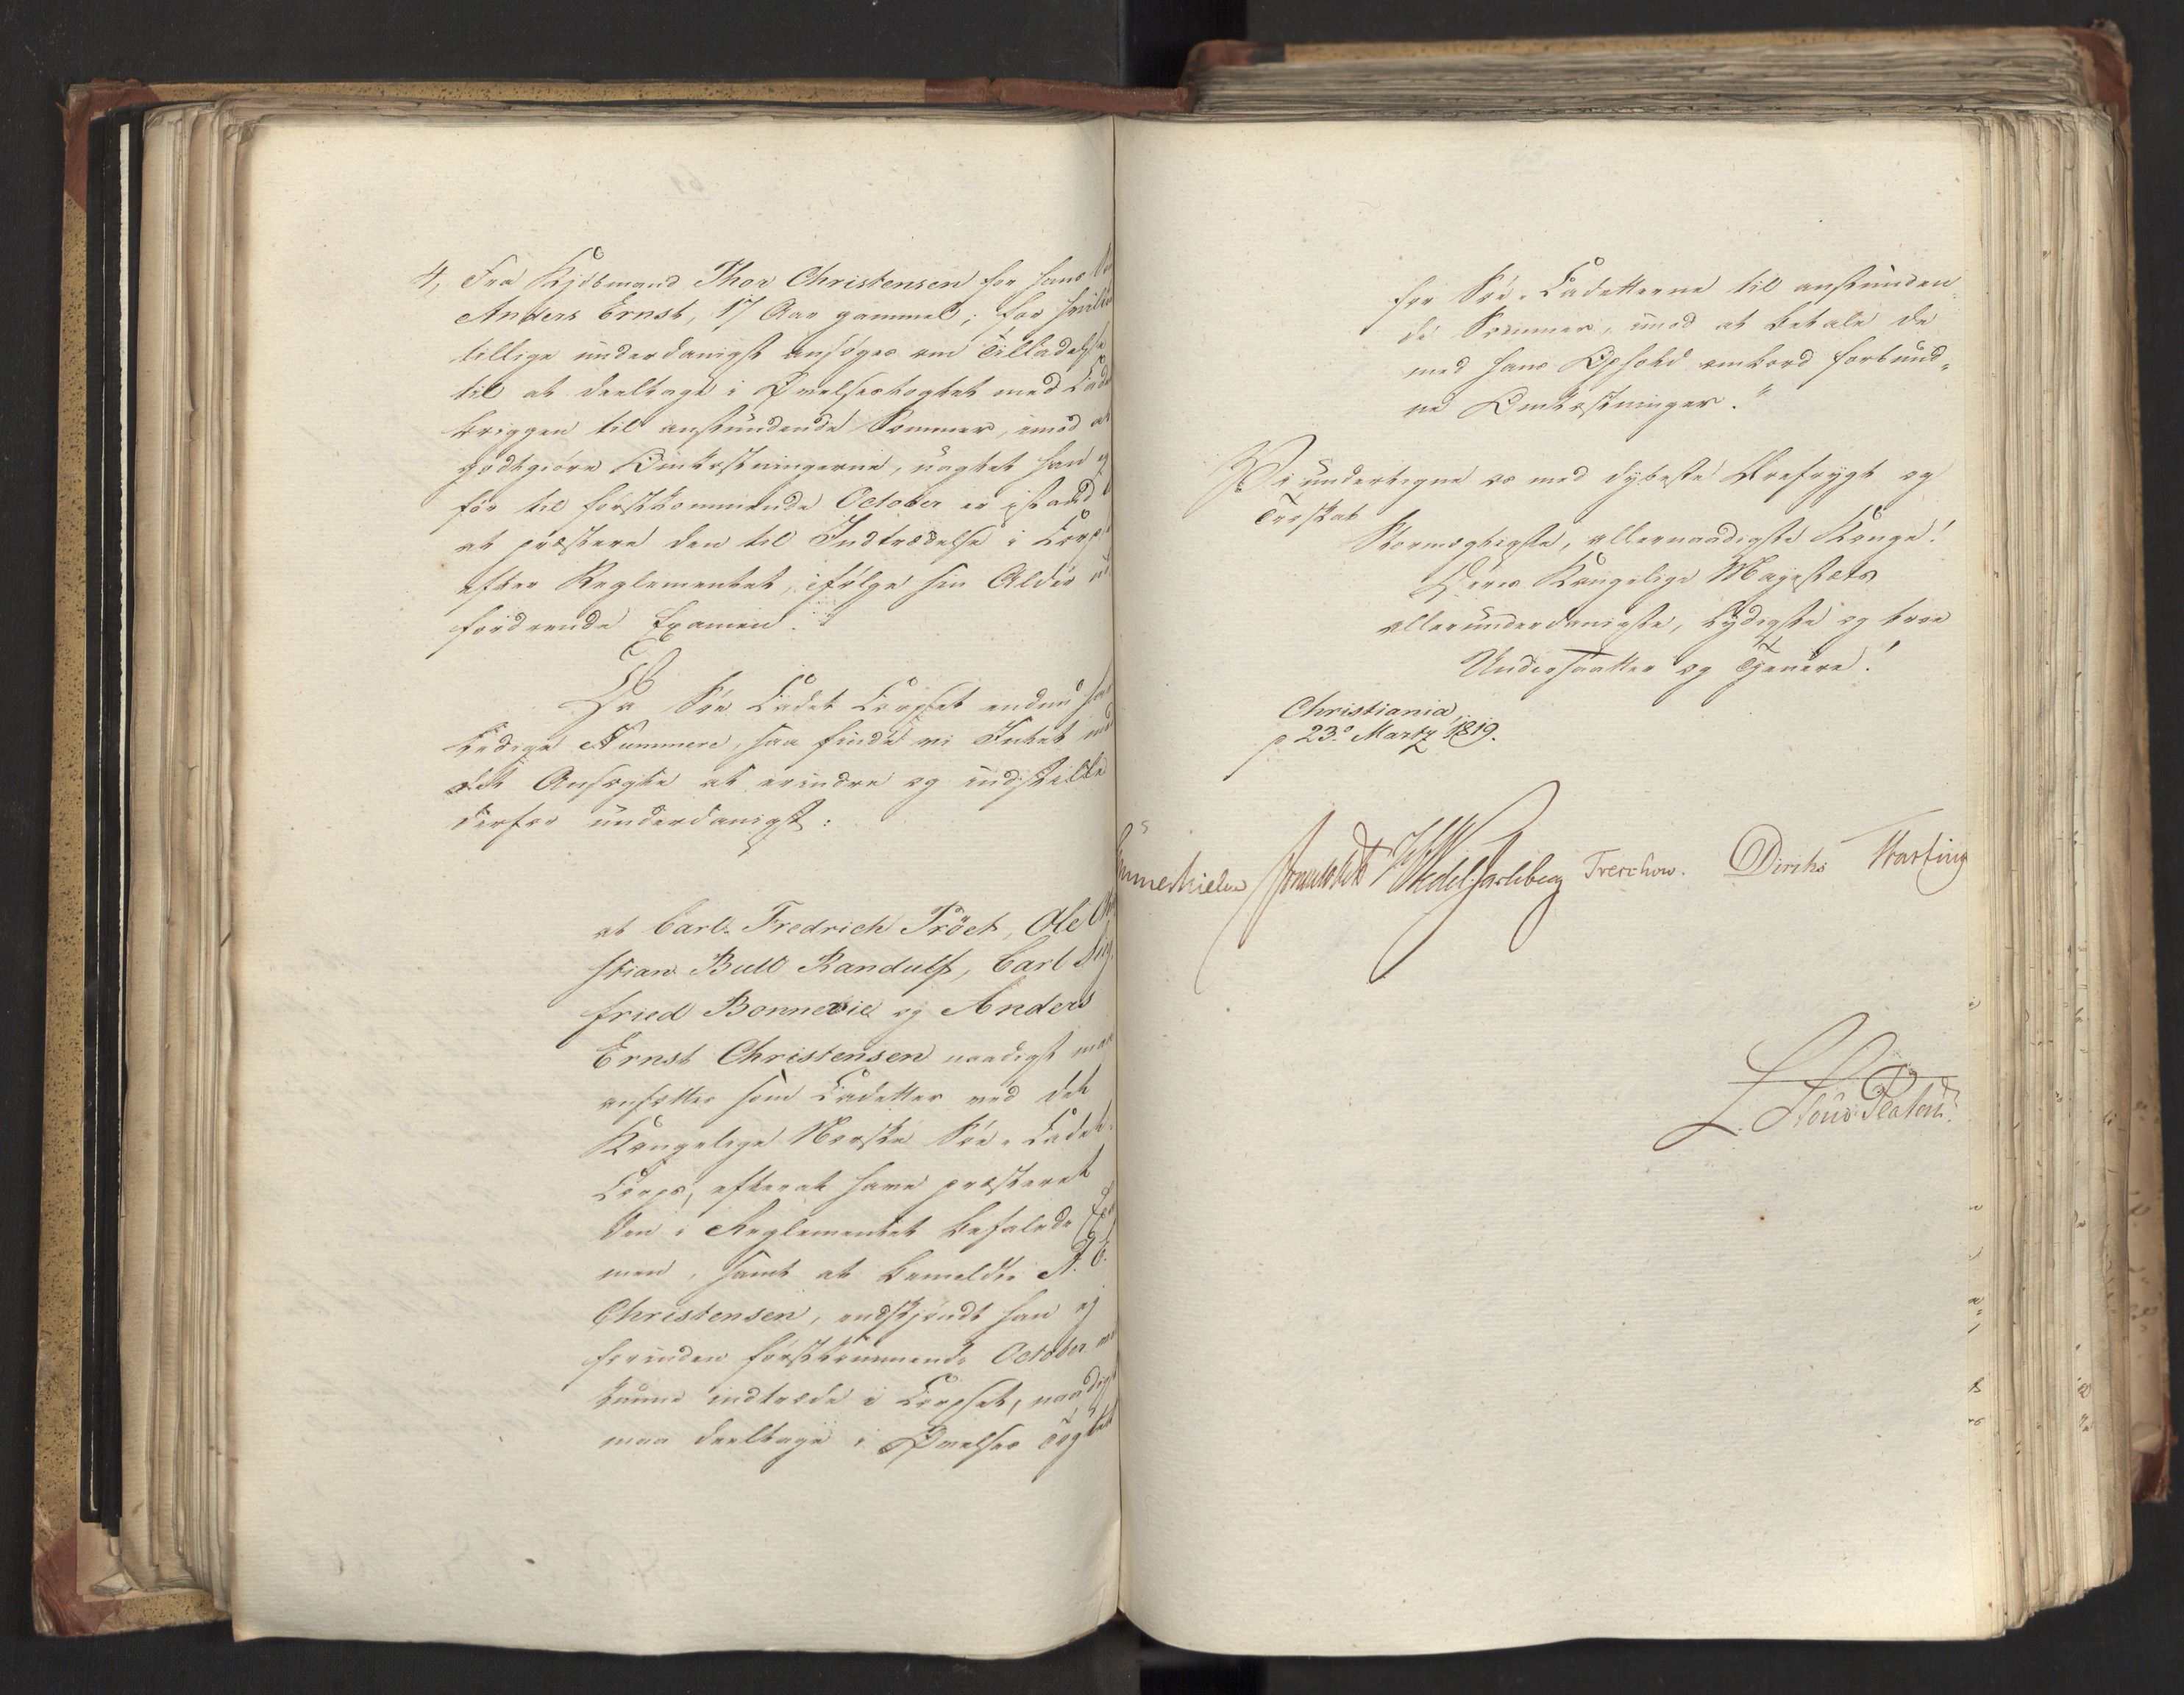 4, Fra Kjöbmand Thor Christensen for hans
Anders Ernst, 17 Aar gammel; for hvilken
tillige underdanigst ansöges om Tilladelse
til at deeltage i Øvelsestogtet med Cadet
briggen til anstundende Sommer, imod at
godtgiöre Omkostningerne, uagtet han ej
för til förstkommende October er istand
at præstere den til Indtrædelse i Corpset
efter Reglementet, ifölge sin Alder ud
fordrende Examen."
Da Söe Cadet Corpset endnu har
ledige Numere, saa finde vi Intet med
det Ansögte at erindre og indstille
derfor underdanigst:
at Carl Fredrich Tröet, Ole Chri
stian Bull Randulff, Carl Sieg
fried Bonnevie og Anders
Ernst Christensen naadigst maa
ansættes som Cadetter ved det
Kongelige Norske Söe-Cadet-
Corps, efterat have præsteret
den i Reglementet befalede Exa
men, samt at bemeldte A. E.
Christensen, endskjöndt han ej
forinden förstkommende October
kunne indtræde i Corpset, naadigst
maa deeltage i Øvelses Togtet
for Söe-Cadetterne til anstunden-
de Sommer, imod at betale de
med hans Ophold ombord forbund-
ne Omkostninger."
Vi undertegne os med dybeste Ærefrygt og
Troskab
Stormægtigste, allernaadigste Konge!
Deres Kongelige Majestæts
allerunderdanigste, lydigste og troe
Undersaatter og Tjenere!
Christiania,
p 23.º Martz 1819.
Sommerhielm JHWedel Jarlsberg Treschow. Diriks Fasting
L. Stoud Platou